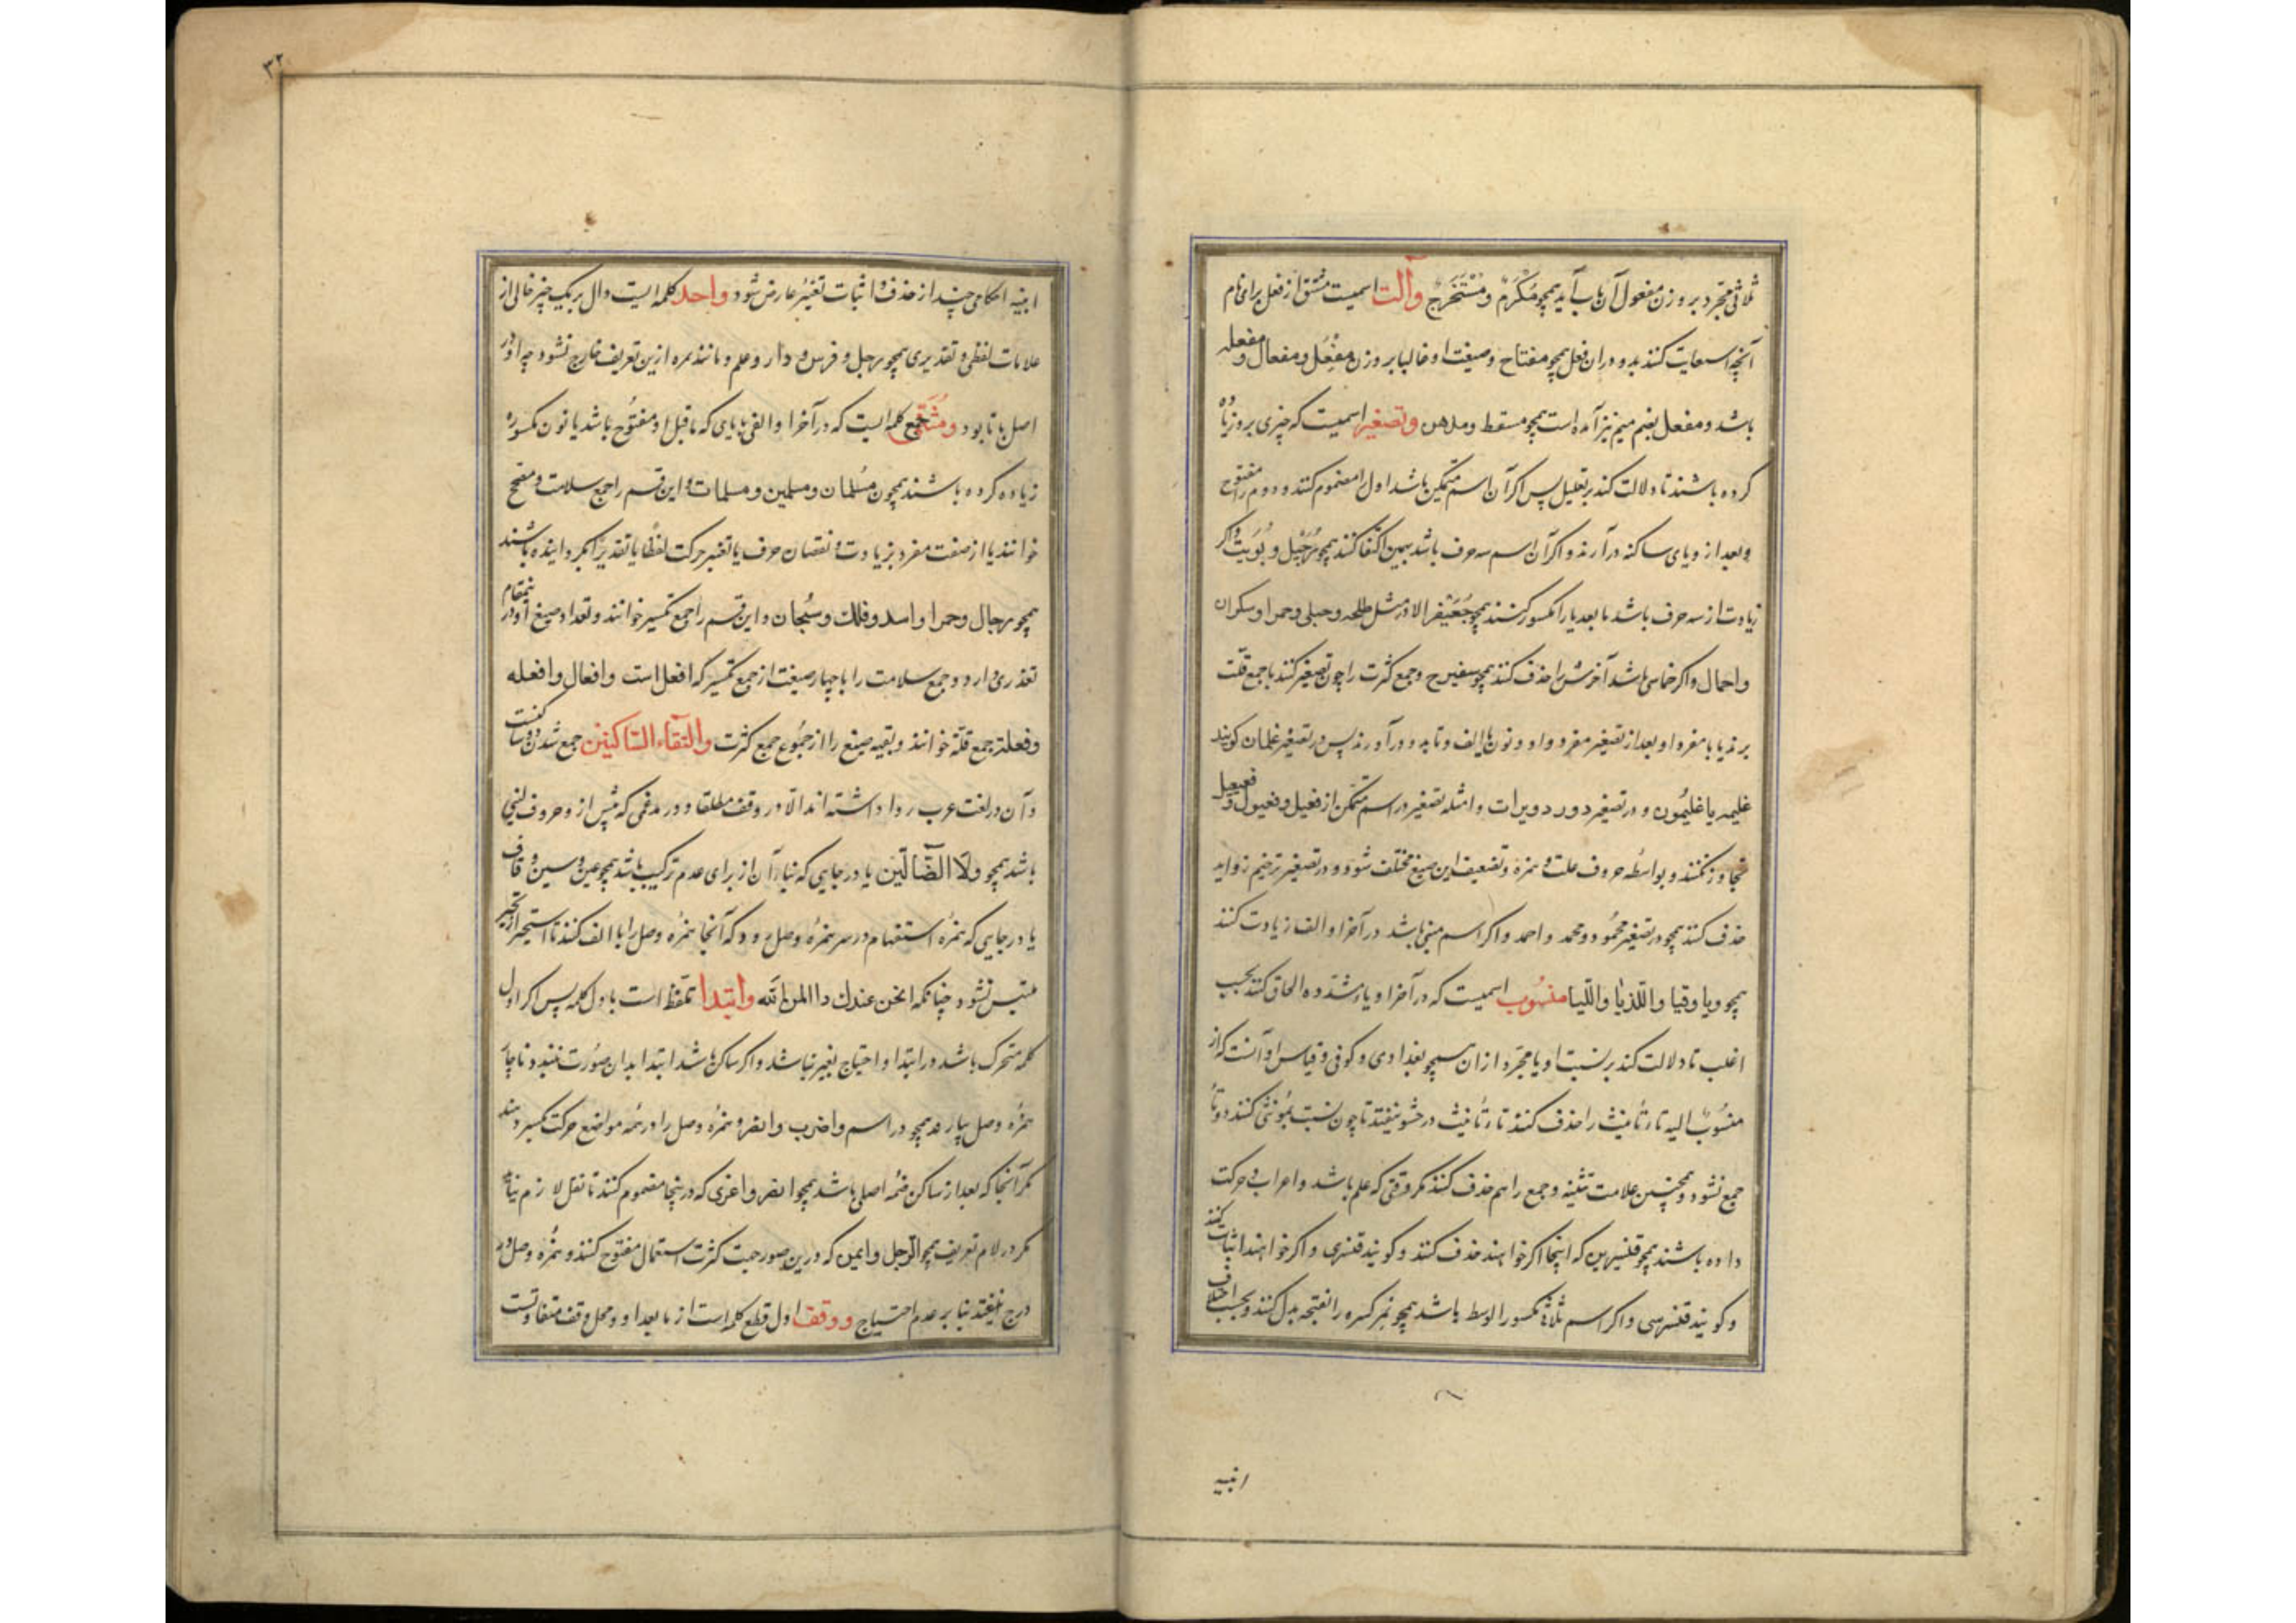 ثلاثی مجرد بر وزن مفعول آن باب آید همچو مُکْرَم و مُسْتَخْرَج وآلت اسمیست مشتق از فعل برای نام
آنچه استعانت کنند بدو در آن فعل همچو مفتاح و صیغت او غالبا بر وزن مِفْعَل و مفعال و مفعله
باشد و مفعل بضم میم نیز آمده است همچو مسقط و مدهن وتصغیر اسمیست که چیزی برو زیاده
کرده باشند تا دلالت کند بر تقلیل پس اگر آن اسم متمکن باشد اول را مضموم کنند و دوم را مفتوح
و بعد از و یای ساکنه درآرند و اگر آن اسم سه حرف باشد بهمین اکتفا کنند همچو رُجَیْل و بُوَیْت و اگر
زیادت از سه حرف باشد ما بعد یا را مکسور کنند همچو جُعَیْفر الا در مثل طلحه و حبلی و حمرا و سکران
و اجمال و اگر خماسی باشد آخرش را حذف کنند همچو سفیرج و جمع کثرت را چون تصغیر کنند با جمع قلت
برند یا با مفرد او بعد از تصغیر مفرد واو و نون یا الف و تا بدو درآورند پس در تصغیر غلمان گویند
غلیمه یا غلیمُون و در تصغیر دور دویرات و امثله تصغیر در اسم متمکن از فعیل و فعیول و فعیعل
تجاوز نکنند و بواسطه حروف علت و همزه و تضعیف این صیغ مختلف شود و در تصغیر ترخیم زواید
حذف کنند همچو در تصغیر محمُود و محمد و احمد و اگر اسم مبنی باشد در آخر او الف زیادت کنند
همچو ویا وقیا واللّذیّا واللّتیا منسُوب اسمیست که در آخر او یاء مشدده الحاق کنند بحسب
اغلب تا دلالت کند بر نسبت او با مجرد از آن همچو بغدادی و کوفی و قیاس او آنست که از
منسُوب الیه تا تأنیث را حذف کنند تا تأنیث در حشو نیفتد تا چون نسبت بمُونثی کنند دو تا
جمع نشود و همچنین علامت تثنیه و جمع را هم حذف کنند مگر وقتی که علم باشد و اعراب بحرکت
داده باشند همچو قنسرین که اینجا اگر خواهند حذف کنند و گویند قنسری و اگر خواهند اثبات کنند
و گویند قنسرینی و اگر اسم ثلاثی مکسور الوسط باشد همچو نمر کسره را بفتحه بدل کنند و بحسب اختلاف
ابنیه
۳۲
ابنیه احکامی چند از حذف و اثبات تغییر عارض شود واحد کلمه‌ایست دال بر یک چیز خالی از
علامات لفظی و تقدیری همچو رجل و فرس و دار و علم و مانند مره ازین تعریف خارج نشود چه او در
اصل با تا بود ومُثَنّی جمع کلمه‌ایست که در آخر او الفی یا یای که ما قبل او مفتُوح باشد یا نون مکسوره
زیاده کرده باشند همچون مُسلمان و مسلمین و مسلمات و این قسم را جمع سلامت و مصحح
خوانند یا از صفت مفرد بزیادت و نقصان حرف یا تغییر حرکت لفظًا یا تقدیرًا بگردانیده باشند
همچو رجال و حمر و اسد و فلک و سُبحان و این قسم را جمع تکسیر خوانند و تعداد صیغ او درینمقام
تعذری دارد و جمع سلامت را با چهار صیغت از جمع تکسیر که افعل است و افعال و افعله
وفعلة جمع قلّة خوانند و بقیه صیغ را از جمُوع جمع کثرت والتقاء الساکنین جمع شدن دو ساکنست
و آن در لغت عرب روا داشته‌اند الّا در وقف مطلقا و در مدغمی که پیش از و حروف لین
باشد همچو وَلَا الضّالّین یا در جایی که بنا آن از برای عدم ترکیب باشد همچو عین و سین و قاف
یا در جایی که همزه استفهام در سر همزهٔ وصل رود که آنجا همزهٔ وصل را با الف کنند تا استخبار از خبر
ملتبس نشود چنانکه الحسن عندک و االمن الله وابتدا تلفظ است باول کلمه پس اگر اول
کلمه متحرک باشد در ابتدا و احتیاج بغیر نباشد و اگر ساکن باشد ابتدا بدان صُورت نبندد ناچار
همزه وصل بیارند همچو در اسم واضرب وانصر و همزهٔ وصل را در همه مواضع حرکت کسر دهند
مگر آنجا که بعد از ساکن ضمهٔ اصلی باشد همچو انصر و اغزی که درینجا مضموم کنند تا نقل لازم نیاید
مگر در لام تعریف همچو الرّجل و ایمن که درین صور جهت کثرت استعمال مفتوح کنند و همزه وصل در
درج بیفتد بنا بر عدم احتیاج ووقف اول قطع کلمه است از ما بعد او و محل وقف متفاوتست